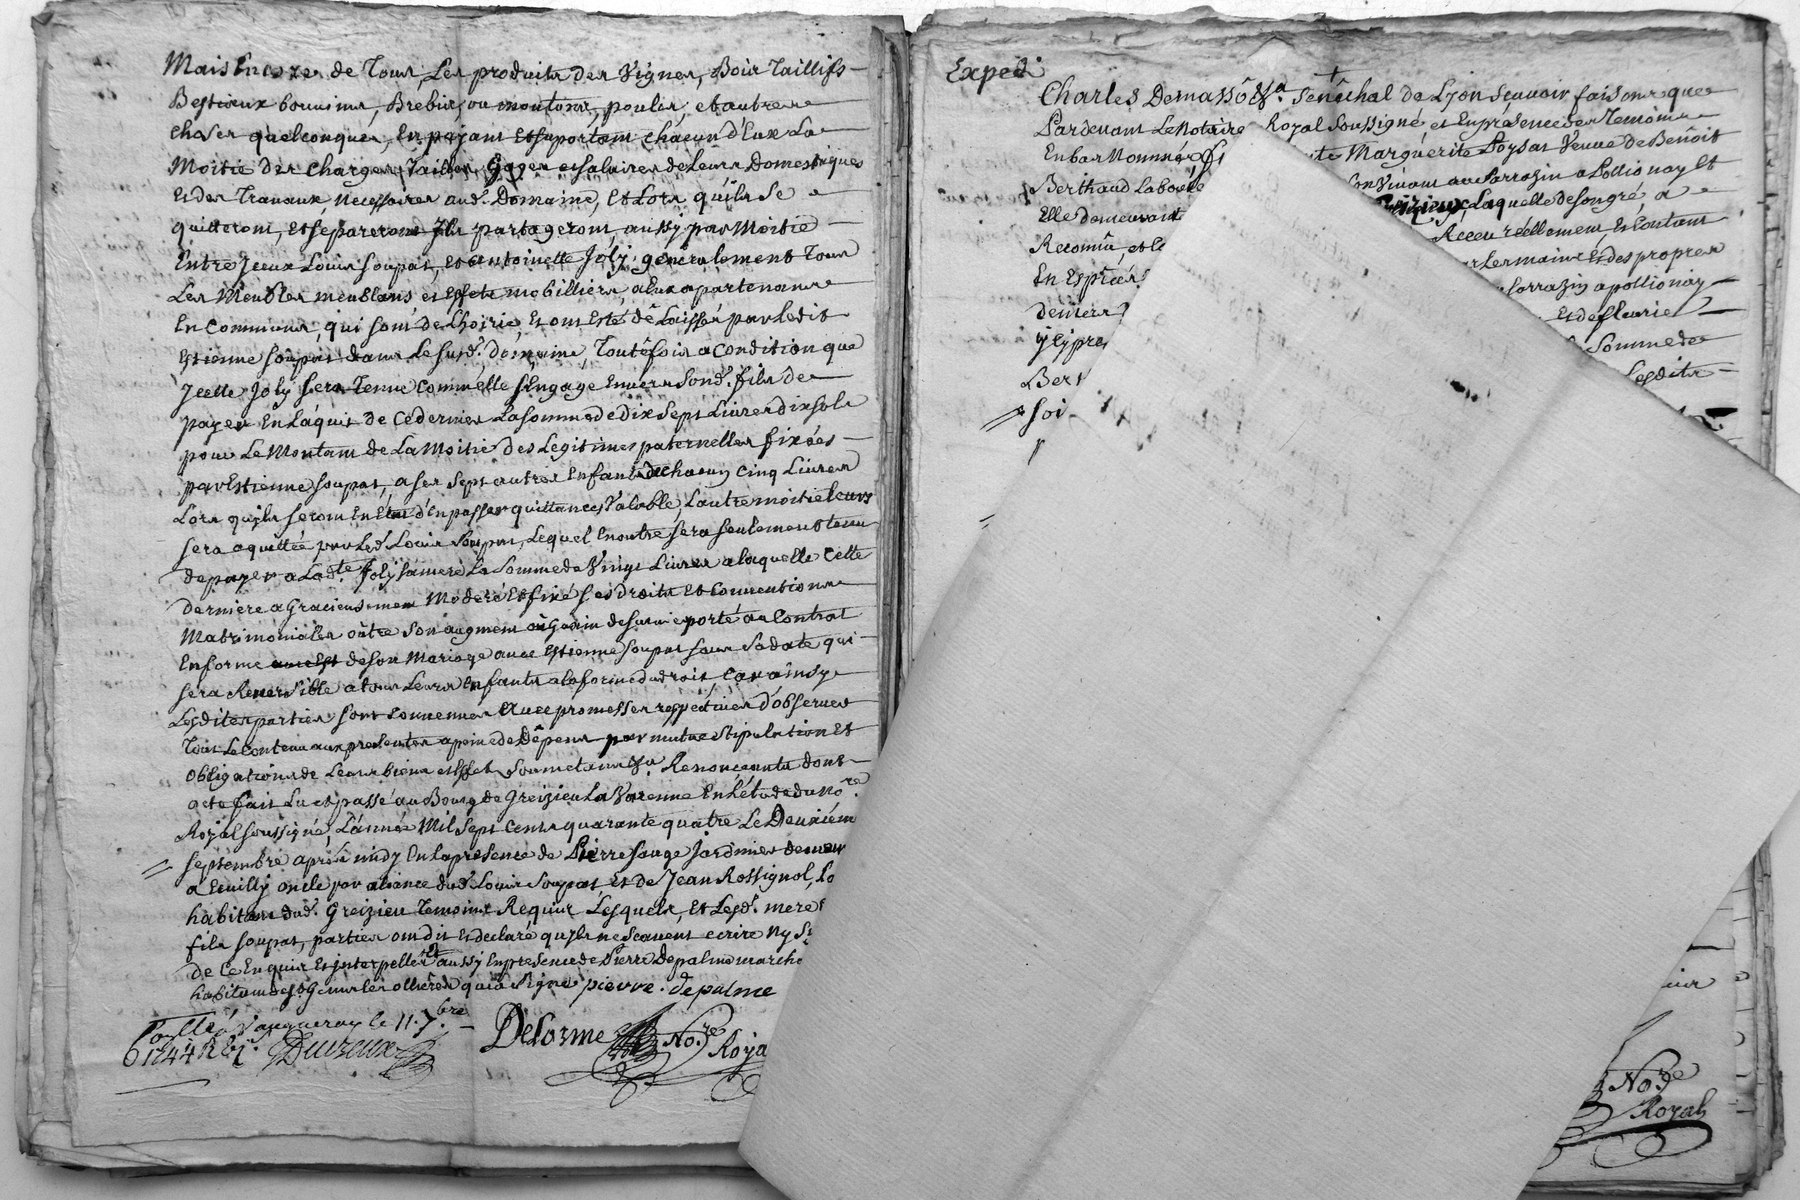 Mais Encore de Tous Les produits des Vignes, Bois Taillifs
Bestieaux bouuines, Brebies, ou moutons, poules, et autres
choses quelconques, En payant Et suportant chacun d'Eux La
Moitié des Charges, Tailles, Gages et salaires de Leurs Domestiques
Et des Travaux necessaires aud. Domaine, Et Lors qu'ils Se
quitteront, Et Separeront Ils partageront, aussy par Moitié
Entre Iceux Louis Soupat, Et antoinette Joly generalement Tous
Les Meubles meublans et Effets mobilliers, a Eux apartenants
En Commun, qui sont de L'hoirie, Et ont Esté dé Laissés par Ledit
Estienne Soupat dans Le susd. domaine, Toutefois a Condition que
Jcelle Joly sera Tenue Comm'elle s'Engage Enuers Sond. fils de
payer En L'aquit de Ce dernier La somme de Dix Sept Liures dix sols
pour Le Montant de La Moitié des Legitimes paternelles fixées
par Estienne Soupat, a ses Sept autres Enfants de chacun Cinq Liures
Lors qu'ils seront En Etat d'En passer quittances Valable, L'autre moitie leurs
sera aquittée par Led. Louis Soupat, Lequel En outre sera seulement tenu
de payer a Lad.te Joly sa mere La Somme de Vingt Liures a laquelle Cette
derniere a Gracieusement Moderé Et fixé Ses droits Et Conuentions
Matrimoniales outre Son augment ou Gain de suruie porté au Contrat
En forme de Son Mariage auec Estienne Soupat sous Sa date qui
sera Reuersible a tous Leurs Enfants a la forme du droit, Car ainsy
Lesdites parties sont Conuenues Auec promesses respectiues d'obseruer
Tout Le Contenu aux presentes a peine de Dépens par mutue stipulation Et
obligations de Leurs biens et Effets Soumetants &a. Renonçeants dont
acte fait Lu et passé au Bourg de Greizieu La Varenne En L'étude du No.re
Royal soussigné, L'année Mil Sept Cents quarante quatre Le Deuxiém
Septembre aprés midy En la presence de Pierre Sauge Jardinier demeu
a Leuilly oncle par aliance dud. Louis Soupat, Et de Jean Rossignol,
habitant dud. Greizieu Temoins Requis Lesquels, Et Lesd. mere
fils Soupat, parties ont dit Et declaré qu'ils ne Scauent ecrire Ny
de Ce Enquis Et interpellés Et aussy En presence de Pierre Depalme march
habitant de St. Genis Les ollieres qui a Signé pierre. depalme
Collé a Vaugneray le 11. 7.bre
1744 Delorme No.re
Roya
Expedi
Charles Demasso &a. Sen̂echal de Lyon Scauoir faisons que
Pardeuant Le Notaire Royal Soussigné, et En presence des Temoins
En bas Nommés Marguerite Poysat Veuue de Benoit
Berthaud Laboure Viuant au Sarrazin a Pollionay Et
Elle demeurant Laquelle de son gré a
Reconnu, et Receu réellement, Et Contant
En Espéces Les mains Et des propres
deniers Sarrazin a pollionay
Et de fleurie
Somme de
Ber Lesdits
Soi
No.re
Royal